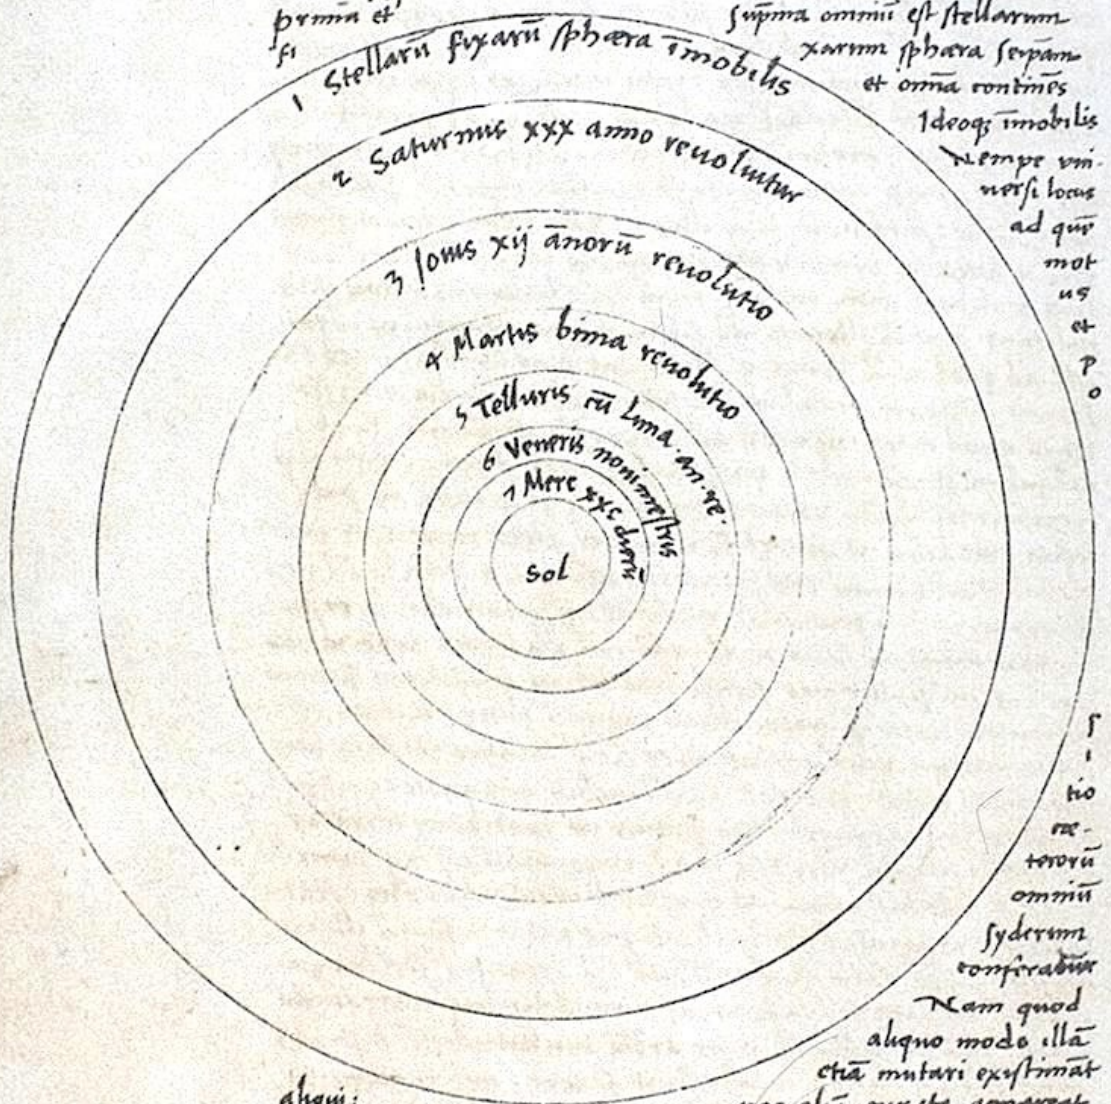 prima et
fi
Suṗma omniū est stellarum
xarum sphæra seipām
et omīa continēs
Ideoq̨ īmobilis
Nempe vni
uersi locus
ad quē
mot
us
et
p
o
1 Stellarū fixarū sphæra īmobilis
2 Saturnus xxx anno reuoluitur
3 Jouis xij ānorū reuolutio
4 Martis bima reuolutio
5 Telluris cū luna · an · re ·
6 Veneris nonimestris
7 Merc xxc dierū
Sol
s
i
tio
cæ-
terorū
omniū
syderum
conferatur
Nam quod
aliquo modo illā
etiā mutari existimāt
aliqui: